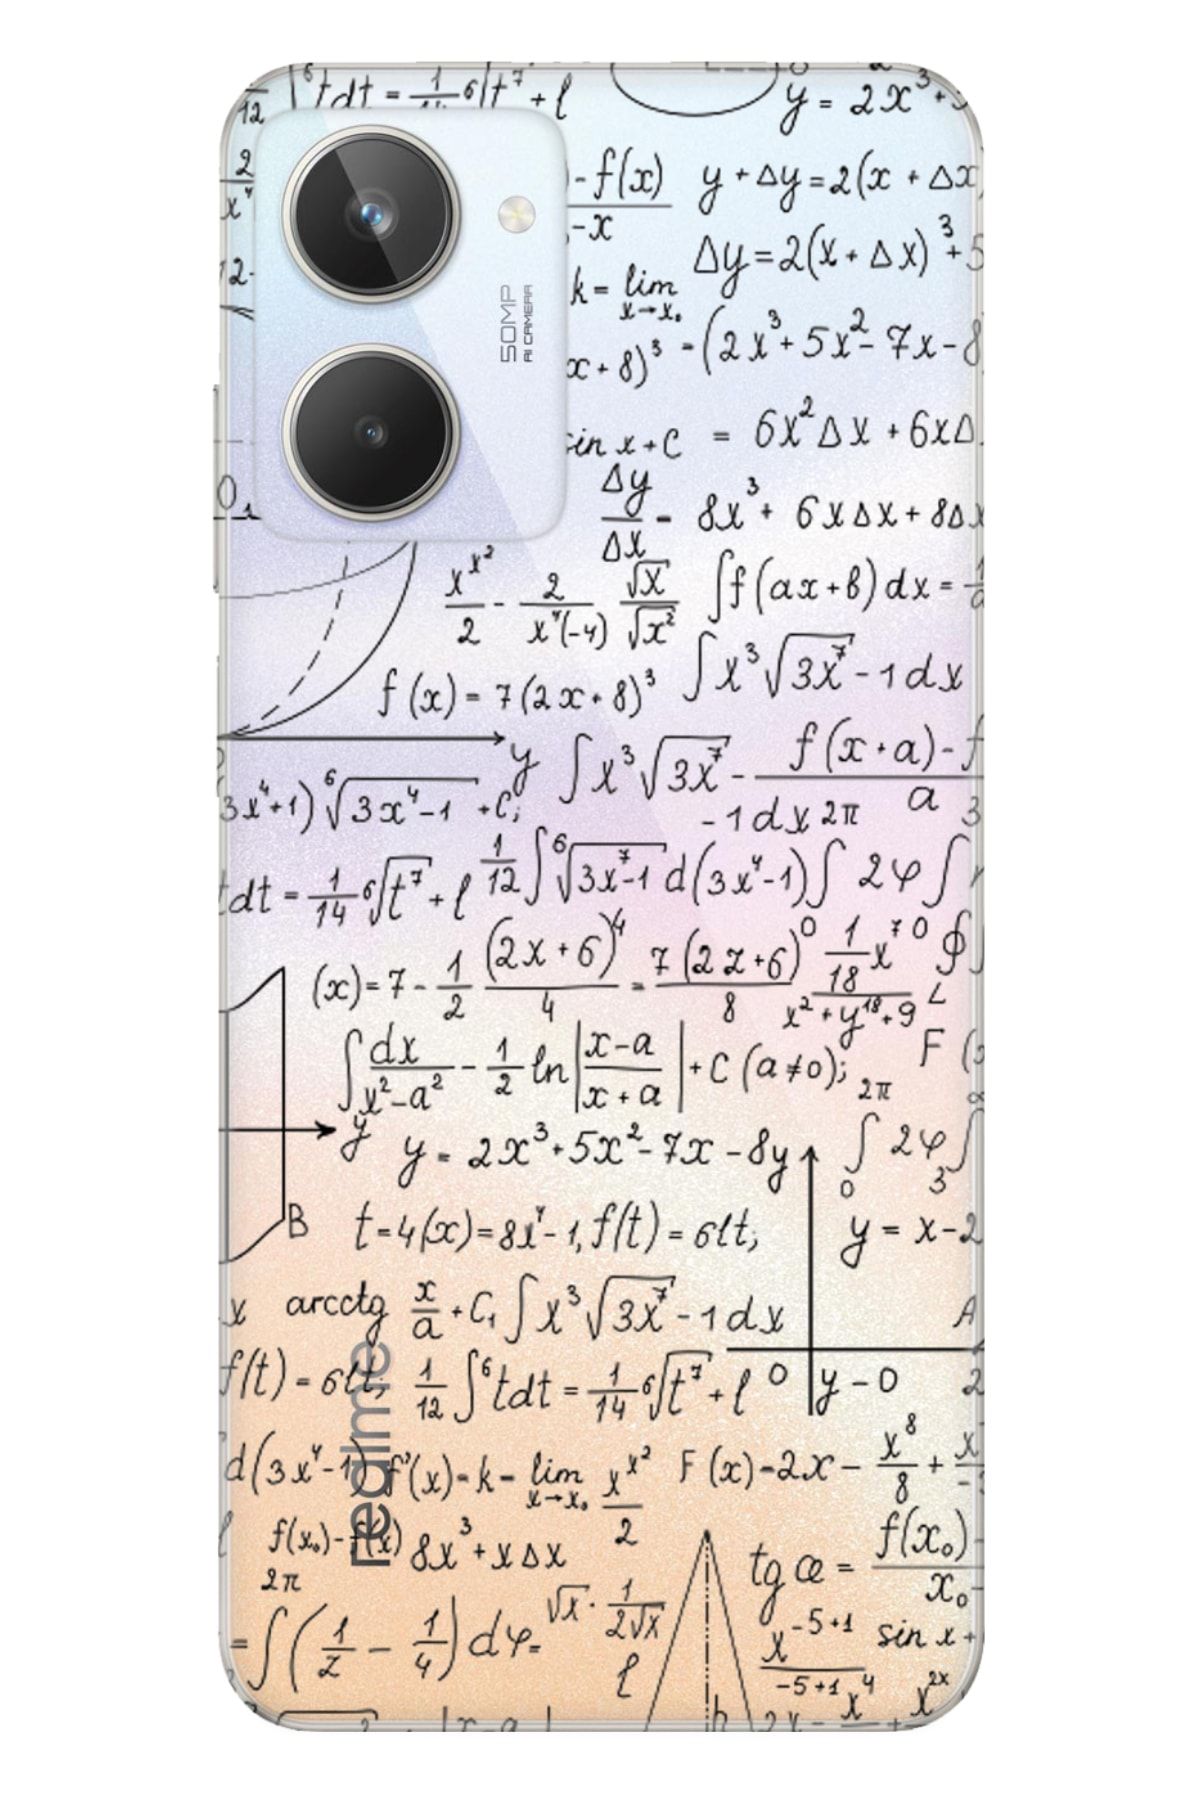 12 ∫⁶tdt = 1/14 ⁶√t⁷ + l y = 2x³+
2/x⁴ -f(x) y + Δy = 2(x + Δx
-x
12- Δy = 2(x + Δx)³ + 5
k = lim x→x₀
50MP
AI CAMERA
x + 8)³ - (2x³ + 5x² - 7x - 8
sin x + C = 6x²Δx + 6xΔ
0₁ Δy/Δx - 8x³ + 6xΔx + 8Δx
x^x²/2 - 2/x⁴(-4) √x/√x² ∫f(ax+b)dx =
f(x) = 7(2x + 8)³ ∫x³√3x⁷ - 1 dx
y ∫x³√3x⁷ - f(x + a) - f / a
3x⁴+1) ⁶√3x⁴-1 + C; -1 dx 2π 3
tdt = 1/14 ⁶√t⁷ + l 1/12 ∫⁶√3x⁷-1 d(3x⁴-1)∫ 2φ ∫
(x) = 7 - 1/2 (2x + 6)⁴/4 = 7(2z+6)⁰/8 1/18 x⁷⁰ ∮
x² + y¹⁸ + 9 L
∫dx/x²-a² - 1/2 ln|x-a/x+a| + C (a≠0); F (
2π ∞
y y = 2x³ + 5x² - 7x - 8y ∫ 2φ ∫
0 3
B t = 4(x) = 8x⁴ - 1, f(t) = 6lt; y = x - 2
x arcctg x/a + C₁ ∫x³√3x⁷ - 1 dx A
f(t) = 6lt; 1/12 ∫⁶tdt = 1/14 ⁶√t⁷ + l 0 y - 0 2
realme
d(3x⁴-1) f'(x) - k - lim x→x₀ x^x²/2 F(x) - 2x - x⁸/8 + x
f(x₀) - f(x) 8x³ + xΔx tg æ = f(x₀) - / x₀ -
2π
= ∫(1/z - 1/4) dφ = √x · 1/2√x x⁻⁵⁺¹/-5+1 sin x +
l x⁴ x²ˣ
x-a h 2x -